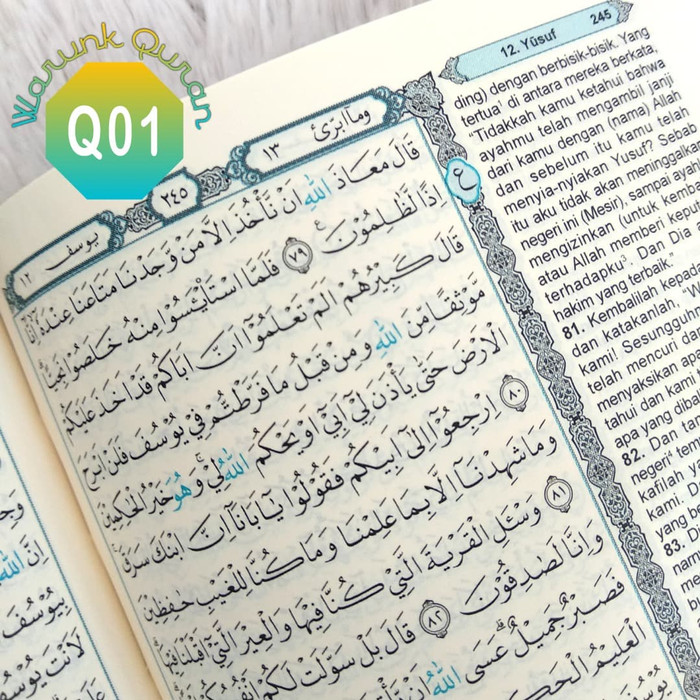 Warunk Quran
Q01
12. Yūsuf
245
وماابرّئ ١٣
٢٤٥
يوسف ١٢
قَالَ مَعَاذَ اللّٰهِ اَنْ نَّأْخُذَ اِلَّا مَنْ وَّجَدْنَا مَتَاعَنَا عِنْدَهٗٓ اِنَّآ
اِذًا لَّظٰلِمُوْنَ ࣖ ٧٩ فَلَمَّا اسْتَا۟يْـَٔسُوْا مِنْهُ خَلَصُوْا نَجِيًّاۗ
قَالَ كَبِيْرُهُمْ اَلَمْ تَعْلَمُوْٓا اَنَّ اَبَاكُمْ قَدْ اَخَذَ عَلَيْكُمْ
مَّوْثِقًا مِّنَ اللّٰهِ وَمِنْ قَبْلُ مَا فَرَّطْتُّمْ فِيْ يُوْسُفَ فَلَنْ اَبْرَحَ
الْاَرْضَ حَتّٰى يَأْذَنَ لِيْٓ اَبِيْٓ اَوْ يَحْكُمَ اللّٰهُ لِيْۚ وَهُوَ خَيْرُ الْحٰكِمِيْنَ
٨٠ اِرْجِعُوْٓا اِلٰٓى اَبِيْكُمْ فَقُوْلُوْا يٰٓاَبَانَآ اِنَّ ابْنَكَ سَرَقَۚ
وَمَا شَهِدْنَآ اِلَّا بِمَا عَلِمْنَا وَمَا كُنَّا لِلْغَيْبِ حٰفِظِيْنَ
٨١ وَسْـَٔلِ الْقَرْيَةَ الَّتِيْ كُنَّا فِيْهَا وَالْعِيْرَ الَّتِيْٓ اَقْبَلْنَا فِيْهَاۗ
وَاِنَّا لَصٰدِقُوْنَ ٨٢ قَالَ بَلْ سَوَّلَتْ لَكُمْ
فَصَبْرٌ جَمِيْلٌۗ عَسَى اللّٰهُ اَنْ
الْعَلِيْمُ
ع
ding) dengan berbisik-bisik. Yang
tertua¹ di antara mereka berkata,
“Tidakkah kamu ketahui bahwa
ayahmu telah mengambil janji
dari kamu dengan (nama) Allah
dan sebelum itu kamu telah
menyia-nyiakan Yusuf? Seba
itu aku tidak akan meninggalkan
negeri ini (Mesir), sampai aya
mengizinkan (untuk kemb
atau Allah memberi keput
terhadapku³. Dan Dia a
hakim yang terbaik.”
81. Kembalilah kepa
dan katakanlah, “W
kami! Sesungguhn
telah mencuri da
menyaksikan ap
tahui dan kami t
apa yang diba
82. Dan tan
negeri⁴ tem
kafilah
kami.
yang be
83. D
nam